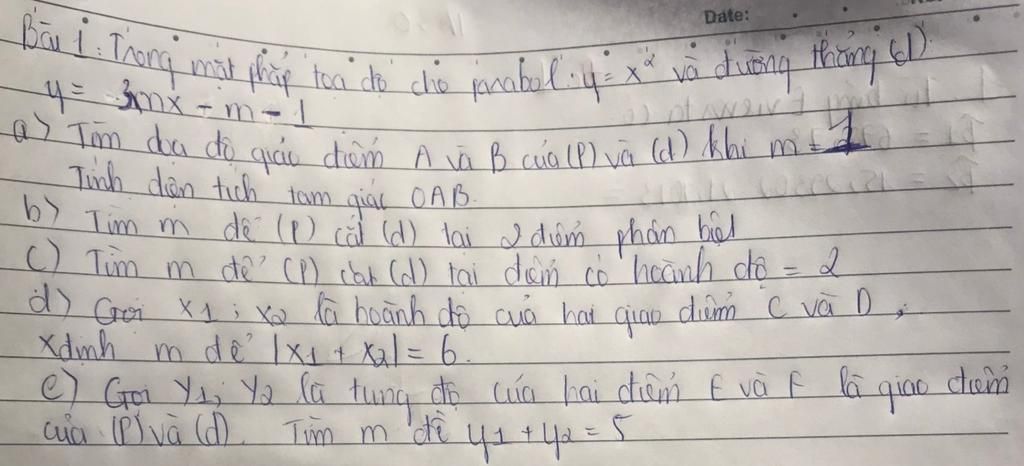 Date:
Bài 1: Trong mặt phẳng toạ độ cho parabol: y = x² và đường thẳng (d)
y = 3mx - m - 1
a) Tìm toạ độ giao điểm A và B của (P) và (d) khi m = 1
Tính diện tích tam giác OAB.
b) Tìm m để (P) cắt (d) tại 2 điểm phân biệt
c) Tìm m để (P) cắt (d) tại điểm có hoành độ = 2
d) Gọi x1; x2 là hoành độ của hai giao điểm C và D,
xđịnh m để |x1 + x2| = 6.
e) Gọi y1; y2 là tung độ của hai điểm E và F là giao điểm
của (P) và (d). Tìm m để y1 + y2 = 5